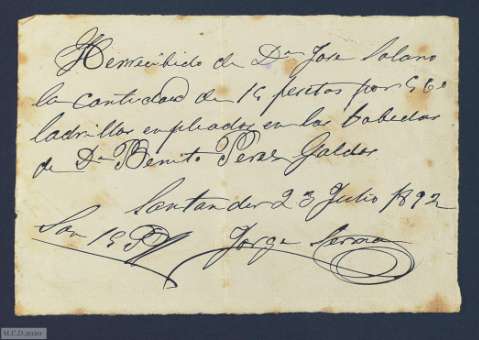 He recibido de Dn Jose Solano
la cantidad de 15 pesetas por 560
ladrillos empleados en las bobedas
de Dn Benito Perez Galdos
Santander 23 Julio 1892
Son 15 P
Jorge Serna
M.C.D. 2020